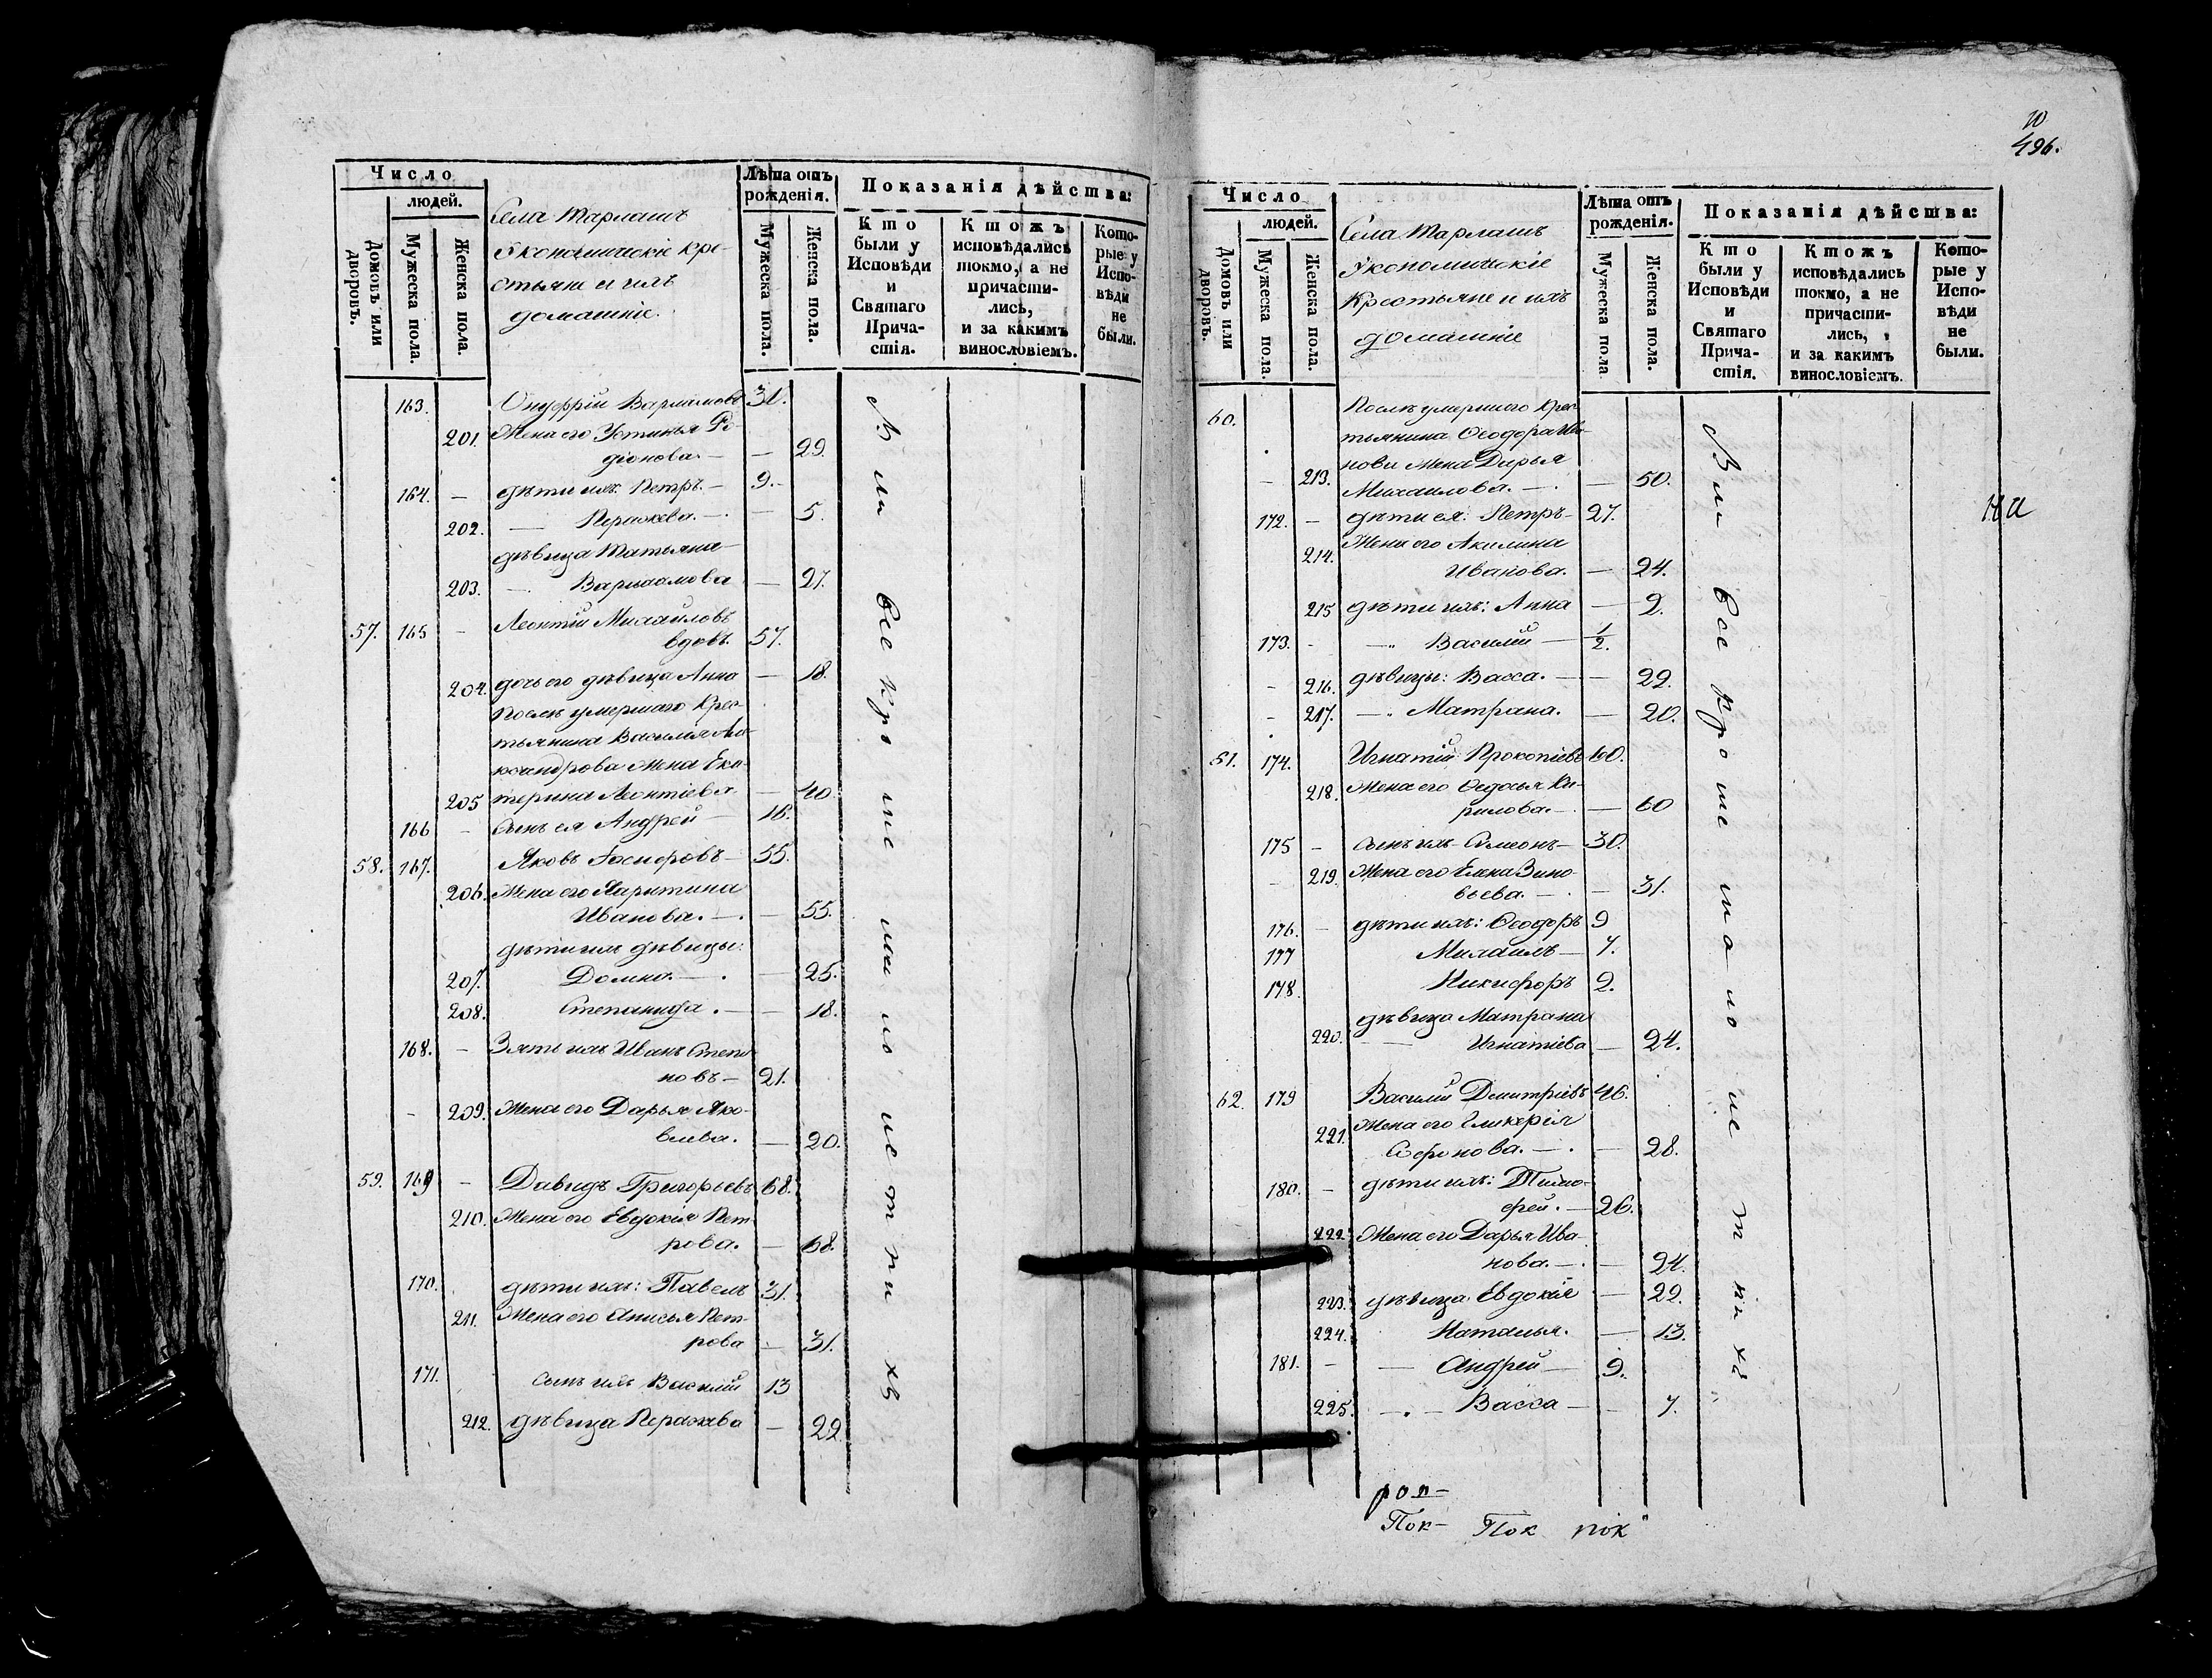 Число
людей.
Домовъ или дворовъ.
Мужеска пола.
Женска пола.
Села Тарлашъ
Экономическiе кре-
стьяне и ихъ
домашнiе.
Лѣта отъ рожденiя.
Мужеска пола.
Женска пола.
Показанiя дѣйства:
Кто были у Исповѣди и Святаго Причастiя.
Ктожъ исповѣдались токмо, а не причастились, и за какимъ винословiемъ.
Которые у Исповѣди не были.
163. Онуфрiй Варламовъ 31.
201. Жена его Устинья Ро-
дiонова. — 29.
164. — дѣти ихъ: Петръ. — 9.
202. — Парасква. — 5.
дѣвица Татьяна
203. — Варлаамова — 27.
57. 165 — Леонтiй Михайловъ
вдовъ. 57.
204. дочь его дѣвица Анна — 18.
Послѣ умершаго крес-
тьянина Василья Але-
ксандрова жена Ека-
205 терина Леонтiева — 40.
166 — Сынъ ея Андрей — 16.
58. 167. Яковъ 55.
206. Жена его Харитина
Иванова. — 55.
дѣти ихъ дѣвицы:
207. Домна. — 25.
208. Степанида. — 18.
168. — Зять ихъ Иванъ Степа-
новъ — 21.
209. Жена его Дарья Яко-
влева. — 20.
59. 169 — Давидъ Григорьевъ 68.
210. Жена его Евдокiя Пет-
рова. — 68.
170. дѣти ихъ: Павелъ 31.
211. Жена его Анисья Пет-
рова — 31.
171. сынъ ихъ Василiй 13
212. дѣвица Парасква — 22.
10
496.
Число
людей.
Домовъ или дворовъ.
Мужеска пола.
Женска пола.
Села Тарлашъ
Экономическiе
Крестьяне и ихъ
домашнiе
Лѣта отъ рожденiя.
Мужеска пола
Женска пола.
Показанiя дѣйства:
Кто были у Исповѣди и Святаго Причастiя.
Ктожъ исповѣдались токмо, а не причастились, и за какимъ винословiемъ.
Которые у Исповѣди не были.
60. Послѣ умершаго крес-
тьянина Ѳеодора Ива-
нова жена Дарья
213. Михаилова. — 50.
172. — дѣти ея: Петръ — 27.
214. Жена его Акилина
Иванова. — 24.
215 дѣти ихъ: Анна — 2.
173. — Василiй — 1/2.
216. дѣвицы: Васса. — 22.
217. — Матрана. — 20.
61. 174. Игнатiй Прокопiевъ 60.
218. Жена его Ѳедосья Ки-
рилова. — 60
175 — сынъ ихъ Симеонъ — 30.
219. Жена его Елена Зино-
вьева. — 31.
176. — дѣти ихъ: Ѳеодоръ 9
177 Михаилъ — 7.
178. Никифоръ 2.
дѣвица Матрана
220. Игнатiева — 24.
62. 179 Василiй Дмитрiевъ 46.
Жена его Гликерiя
221. — 28.
180. — дѣти ихъ: Тимо-
фей. — 26.
222. Жена его Дарья Ива-
нова. — 24.
223. дѣвица Евдокiя — 22.
224. Наталья. — 13.
181. — Андрей — 9.
225. — Васса — 7.
Пок— Пок пок